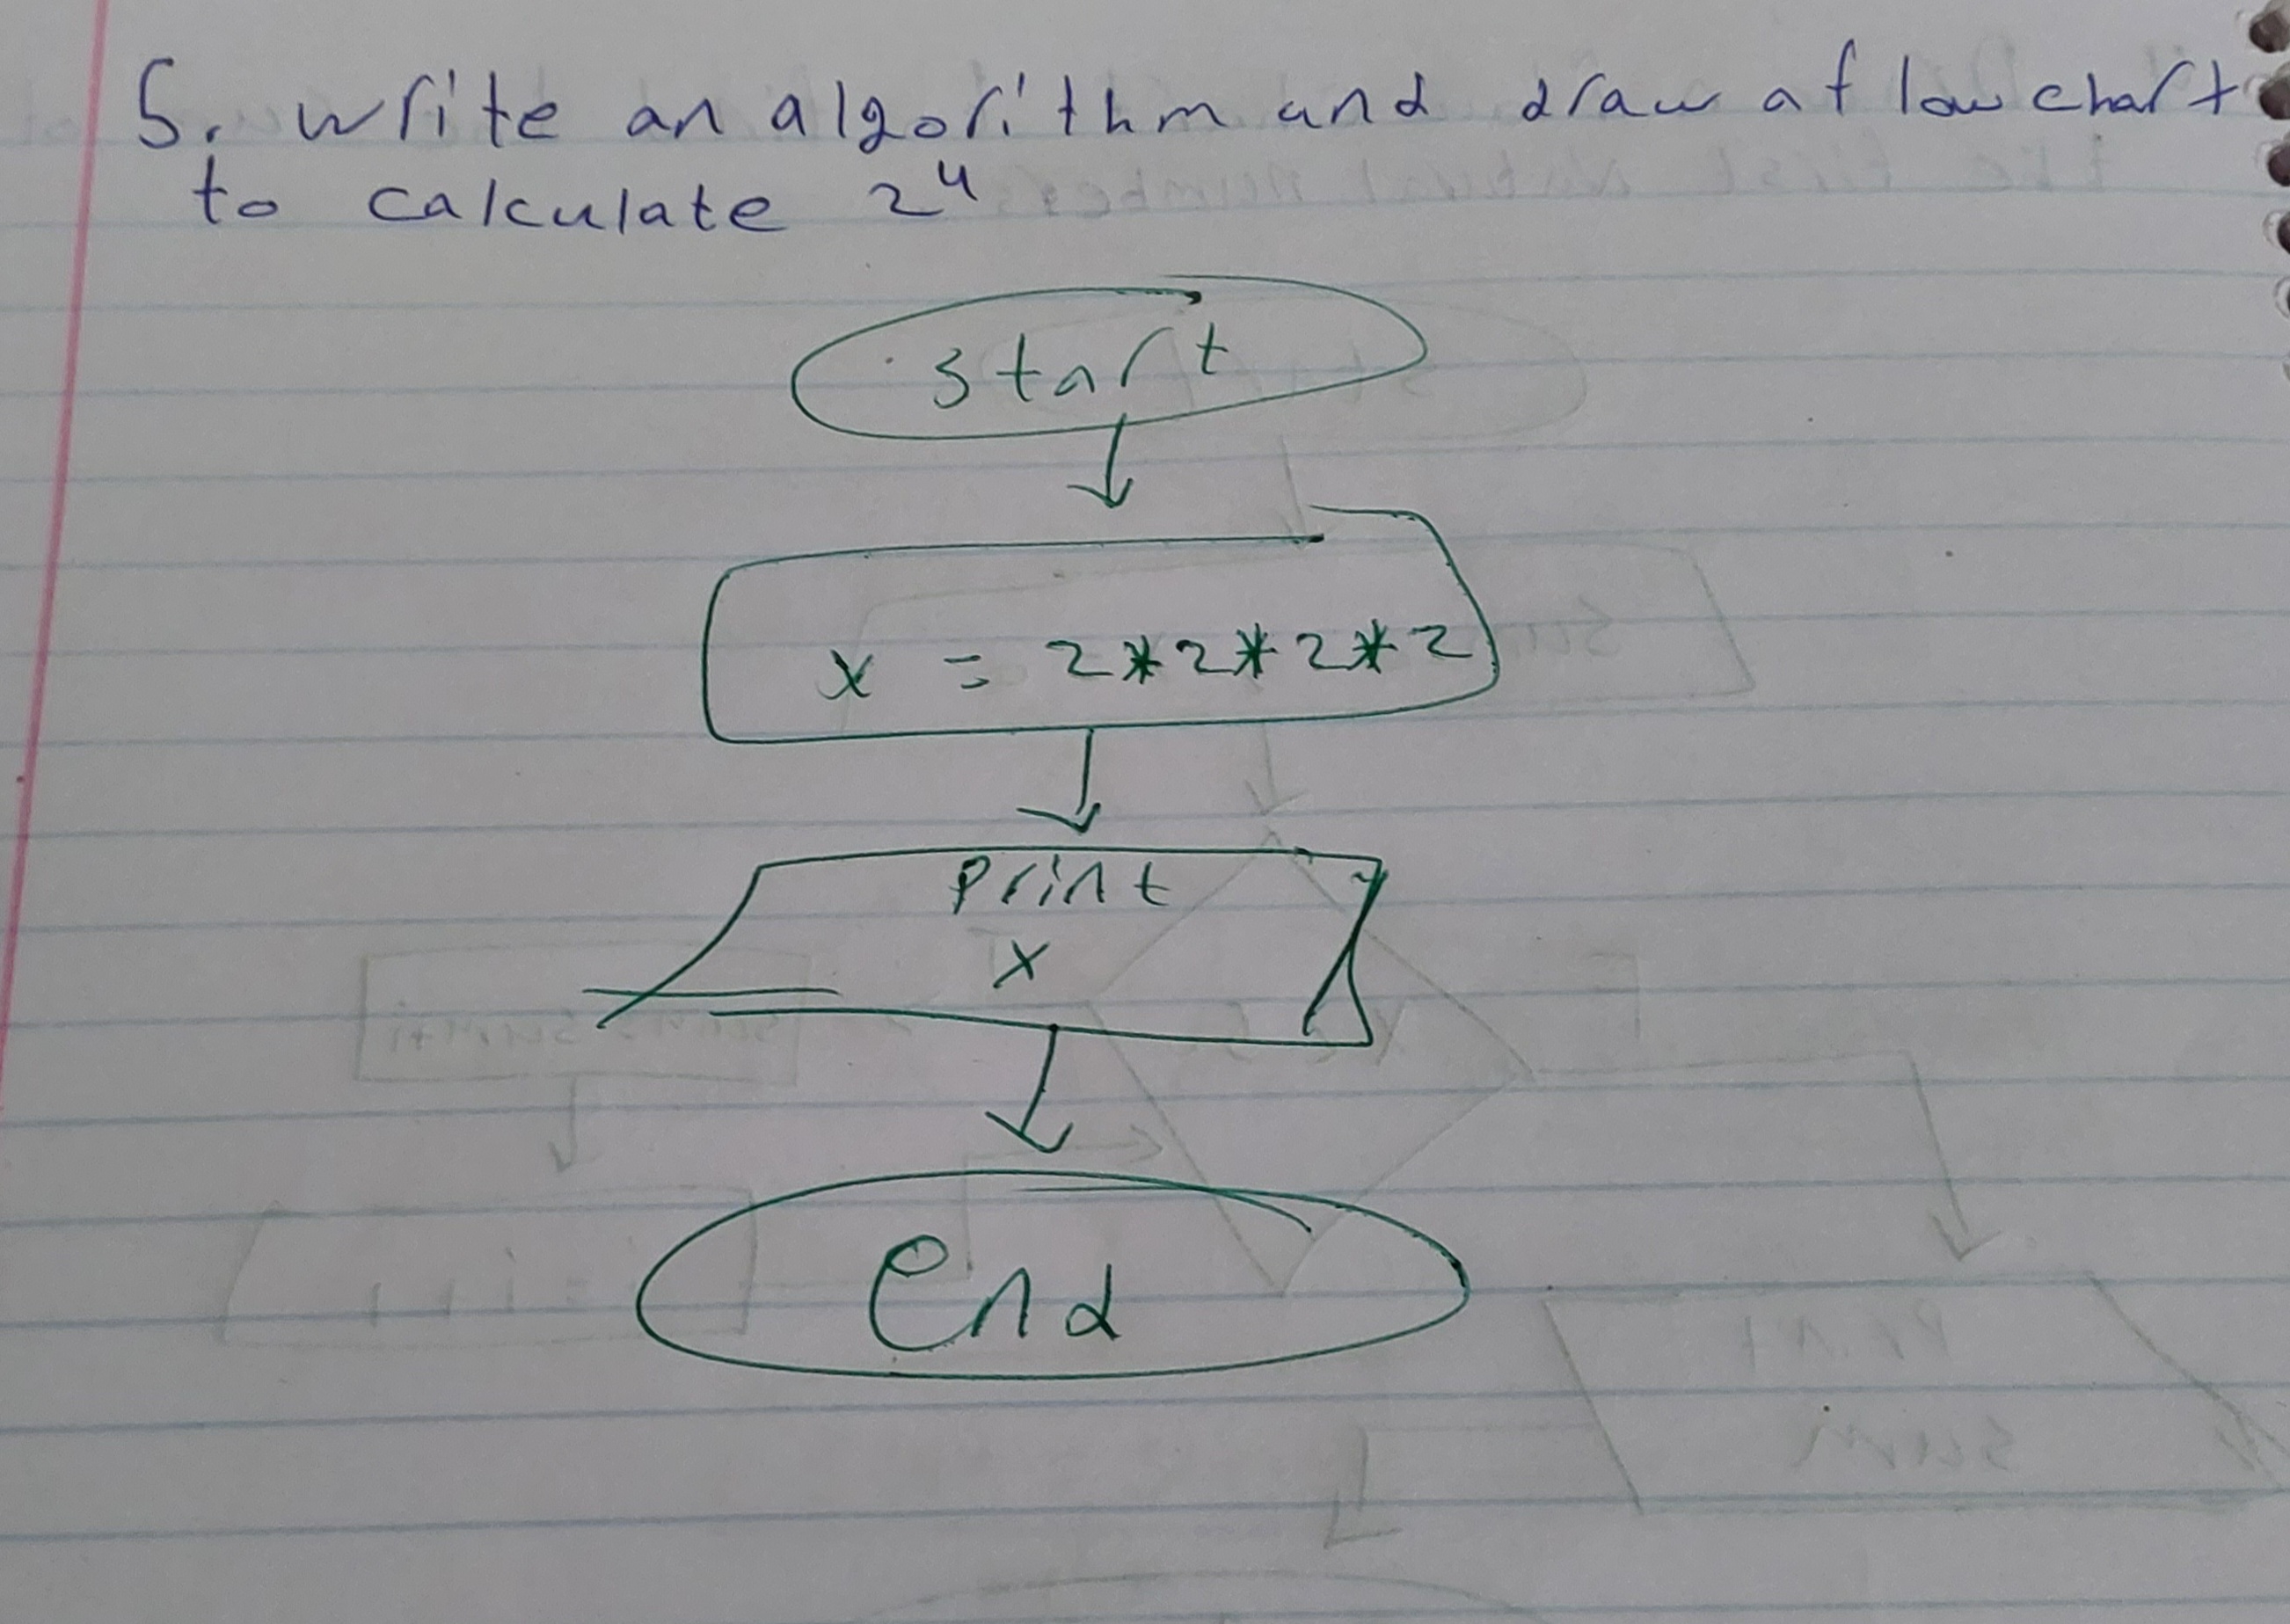 5. write an algorithm and draw a flowchart
to calculate 2⁴
start
x = 2*2*2*2
print
x
End